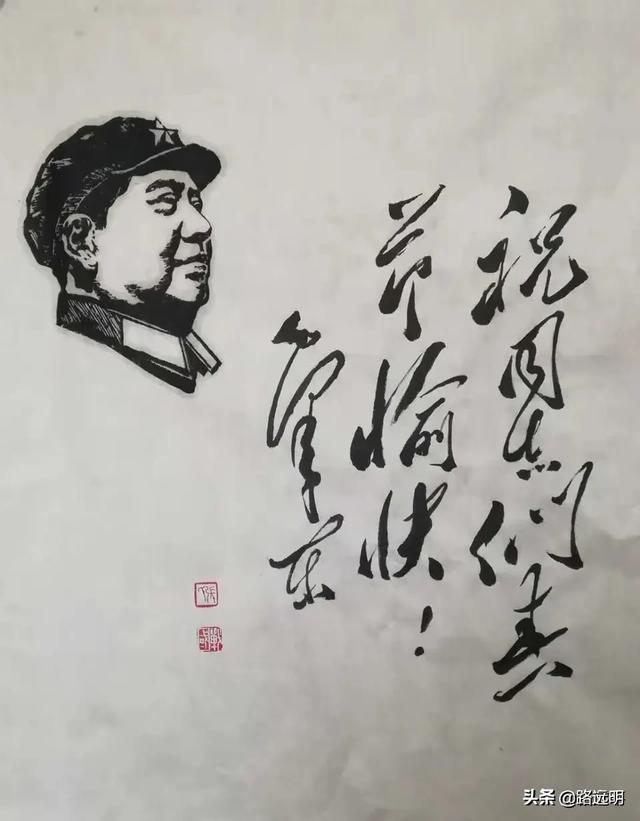 祝同志們春
节愉快！
毛泽东
头条 @路远明